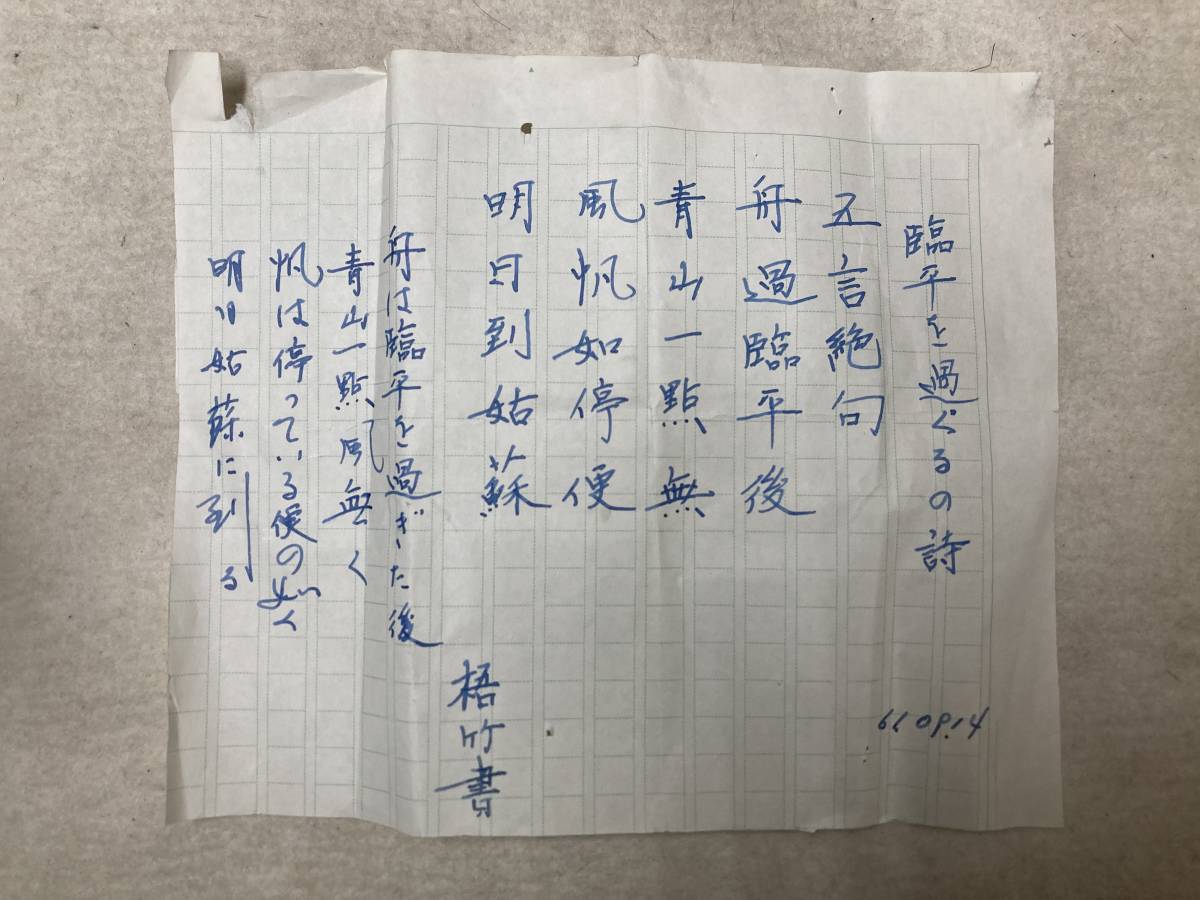 臨平を過ぐるの詩
五言絶句
舟過臨平後
青山一點無
風帆如停便
明日到姑蘇
梧竹書
舟は臨平を過ぎた後
青山一點風無く
帆は停っている便の如く
明日姑蘇に到る
610914